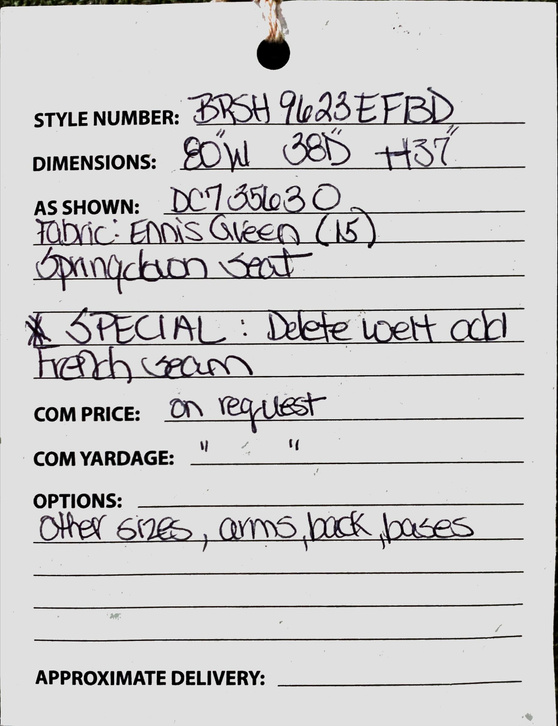 STYLE NUMBER: BRSH 9623EFBD
DIMENSIONS: 80"W 38D" H37"
AS SHOWN: DC735630
Fabric: Ennis Green (15)
Springdown Seat
* SPECIAL: Delete welt add
French seam
COM PRICE: on request
COM YARDAGE: " "
OPTIONS:
Other sizes, arms, back, bases
APPROXIMATE DELIVERY: